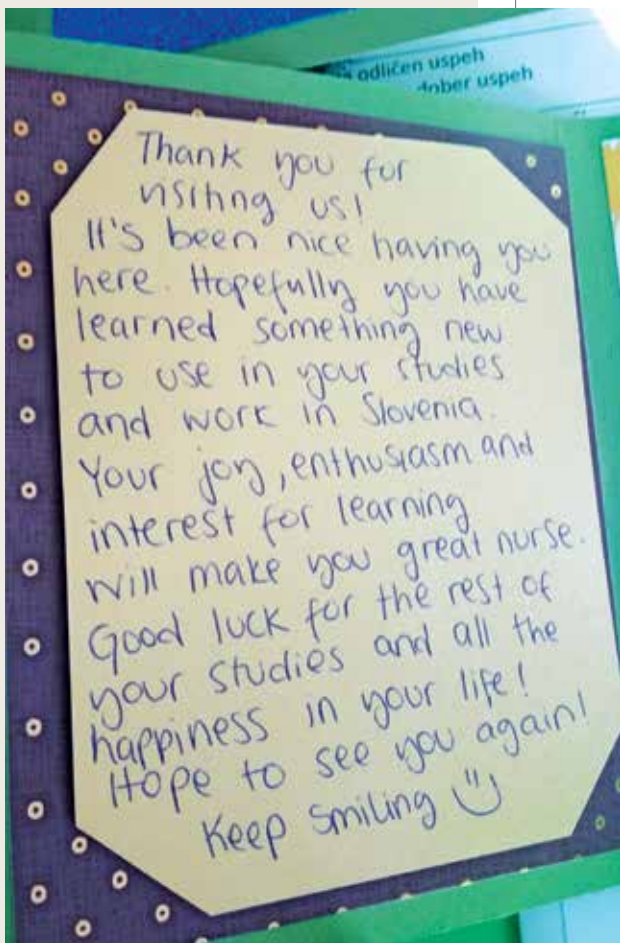 odličen uspeh
dober uspeh
Thank you for
visiting us!
It's been nice having you
here. Hopefully you have
learned something new
to use in your studies
and work in Slovenia.
Your joy, enthusiasm and
interest for learning
will make you great nurse.
Good luck for the rest of
your studies and all the
happiness in your life!
Hope to see you again!
Keep smiling